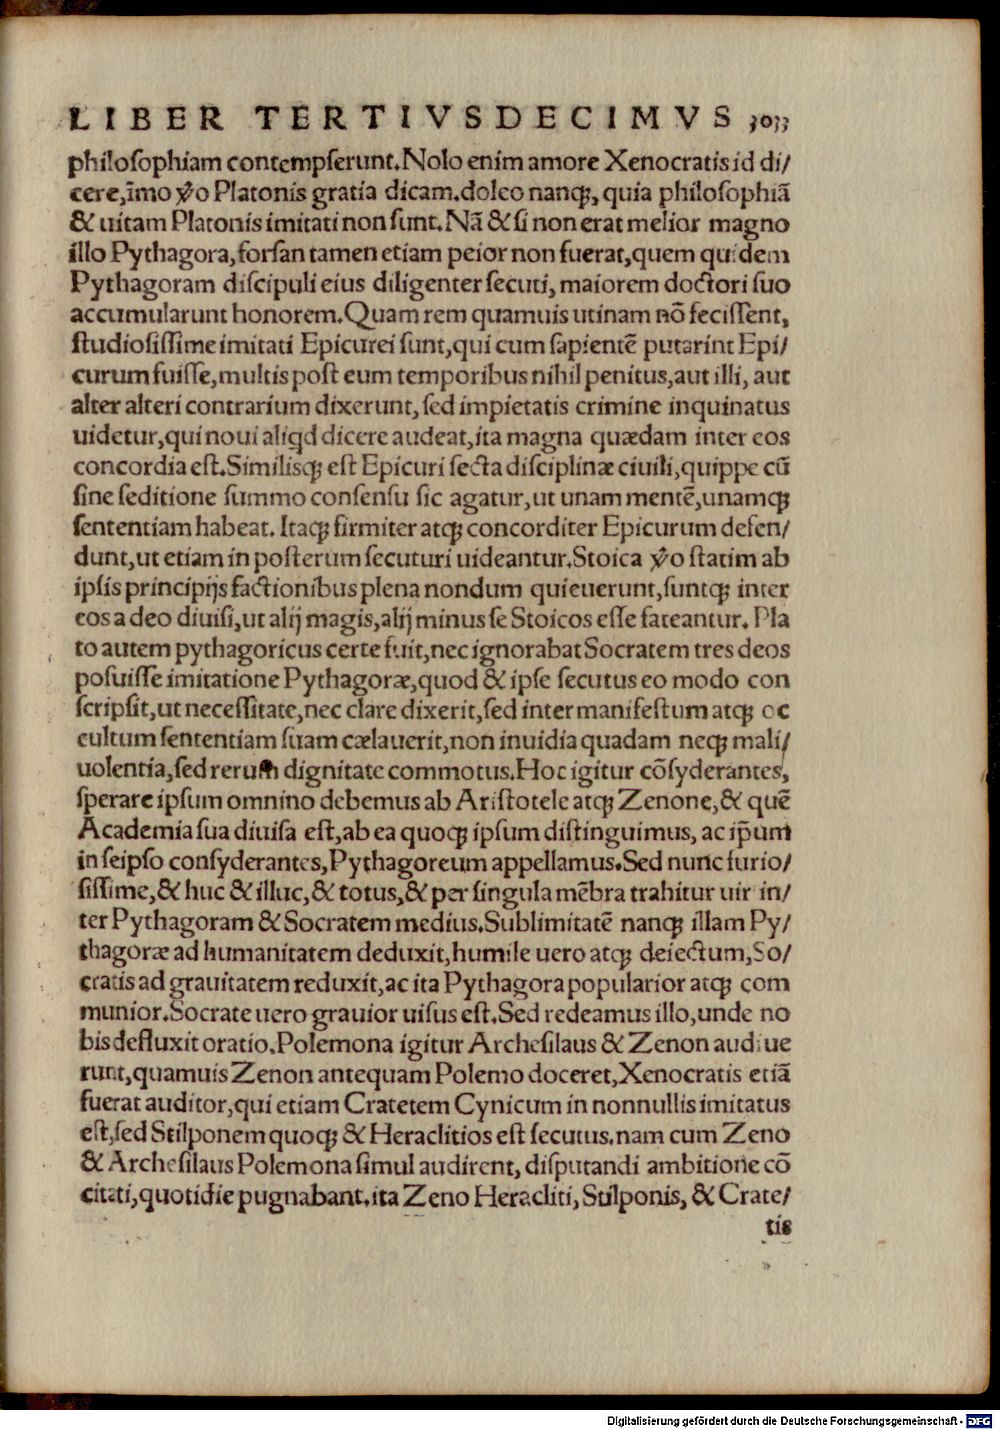 LIBER TERTIVSDECIMVS
philoſophiam contempſerunt.Nolo enim amore Xenocratis id di/
cere,īmo v̄o Platonis gratia dicam.doleo nanqꝫ, quia philoſophiā
& uitam Platonis imitati non ſunt.Nā & ſi non erat melior magno
illo Pythagora,forſan tamen etiam peior non fuerat,quem quidem
Pythagoram diſcipuli eius diligenter ſecuti, maiorem doctori ſuo
accumularunt honorem.Quam rem quamuis utinam nō feciſſent,
ſtudioſiſſime imitati Epicurei ſunt,qui cum ſapientē putarint Epi/
curum fuiſſe,multis poſt eum temporibus nihil penitus,aut illi, aut
alter alteri contrarium dixerunt, ſed impietatis crimine inquinatus
uidetur,qui noui aliqd dicere audeat,ita magna quædam inter eos
concordia eſt.Similisqꝫ eſt Epicuri ſecta diſciplinæ ciuili,quippe cū
ſine ſeditione ſummo conſenſu ſic agatur,ut unam mentē,unamqꝫ
ſententiam habeat. Itaqꝫ firmiter atqꝫ concorditer Epicurum defen/
dunt,ut etiam in poſterum ſecuturi uideantur.Stoica v̄o ſtatim ab
ipſis principijs factionibus plena nondum quieuerunt,ſuntqꝫ inter
eos a deo diuiſi,ut alij magis,alij minus ſe Stoicos eſſe fateantur. Pla
to autem pythagoricus certe fuit,nec ignorabat Socratem tres deos
poſuiſſe imitatione Pythagoræ,quod & ipſe ſecutus eo modo con
ſcripſit,ut neceſſitate,nec clare dixerit,ſed inter manifeſtum atqꝫ oc
cultum ſententiam ſuam cælauerit,non inuidia quadam neqꝫ mali/
uolentia,ſed rerum dignitate commotus.Hoc igitur cōſyderantes,
ſperare ipſum omnino debemus ab Ariſtotele atqꝫ Zenone,& quē
Academia ſua diuiſa eſt,ab ea quoqꝫ ipſum diſtinguimus, ac ip̄um
in ſeipſo conſyderantes,Pythagoreum appellamus.Sed nunc furio/
ſiſſime,& huc & illuc,& totus,& per ſingula mēbra trahitur uir in/
ter Pythagoram & Socratem medius.Sublimitatē nanqꝫ illam Py/
thagoræ ad humanitatem deduxit,humile uero atqꝫ deiectum,So/
cratis ad grauitatem reduxit,ac ita Pythagora popularior atqꝫ com
munior.Socrate uero grauior uiſus eſt.Sed redeamus illo,unde no
bis defluxit oratio.Polemona igitur Archeſilaus & Zenon audiue
runt,quamuis Zenon antequam Polemo doceret,Xenocratis etiā
fuerat auditor,qui etiam Cratetem Cynicum in nonnullis imitatus
eſt,ſed Stilponem quoqꝫ & Heraclitios eſt ſecutus.nam cum Zeno
& Archeſilaus Polemona ſimul audirent, diſputandi ambitione cō
citati,quotidie pugnabant.ita Zeno Heracliti, Stilponis, & Crate/
tis
Digitalisierung gefördert durch die Deutsche Forschungsgemeinschaft - DFG